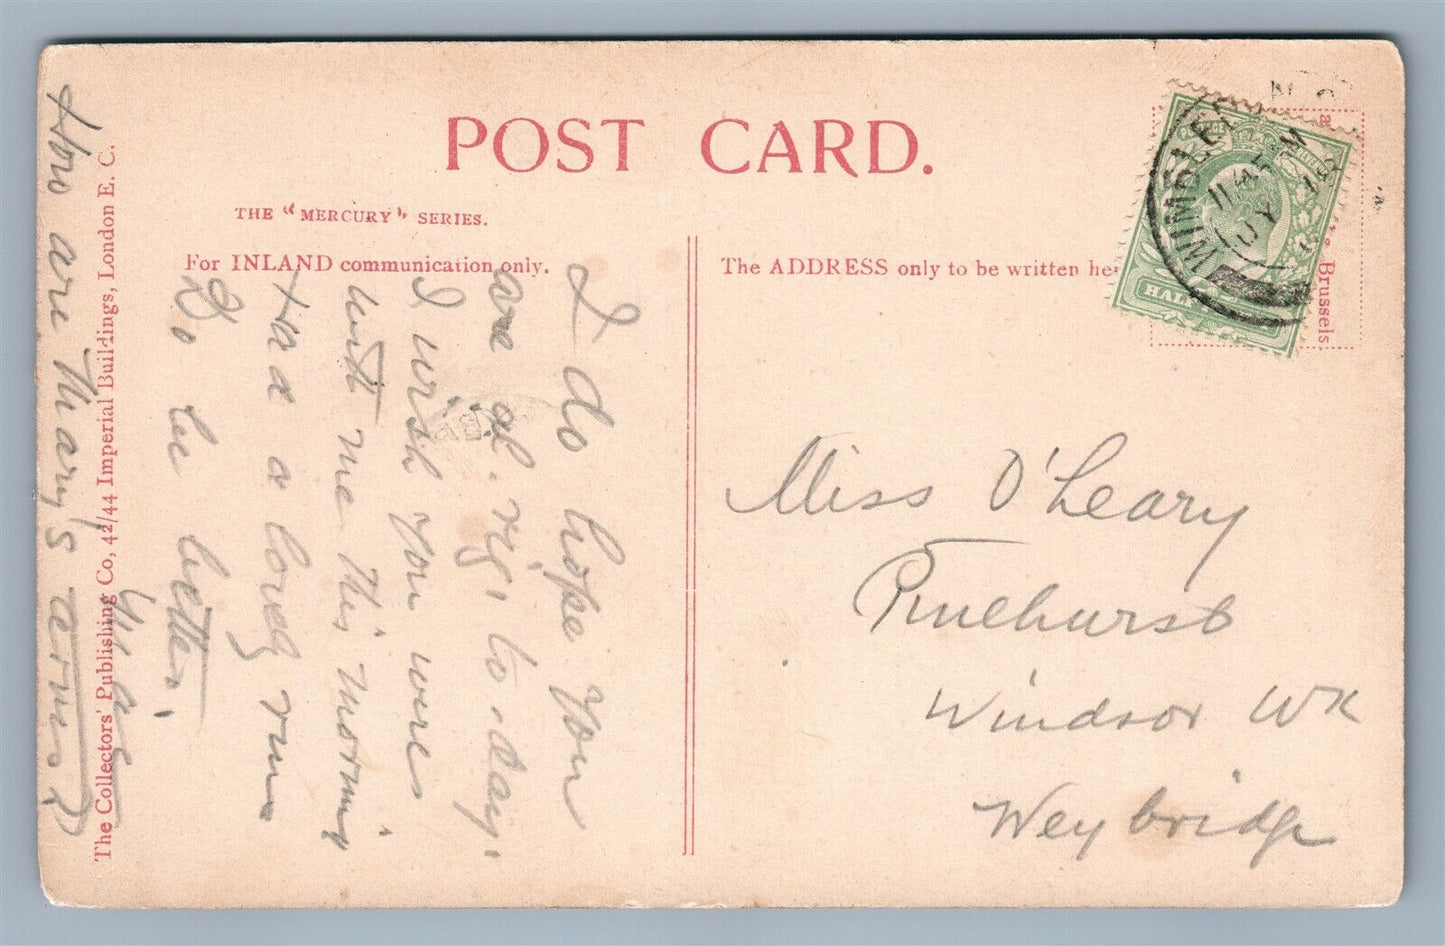 POST CARD.
THE "MERCURY" SERIES.
For INLAND communication only.
The ADDRESS only to be written he
Brussels.
The Collectors' Publishing Co, 42/44 Imperial Buildings, London E. C.
WIMBLED
11 45 AM
JY
HALF
I do hope you
are al. rig. to.day.
I wish you were
with me this morning
Had a lovely run
Do be better.
How are Mary's arms?
Miss O'Leary
Pinehurst
Windsor Wk
Weybridge